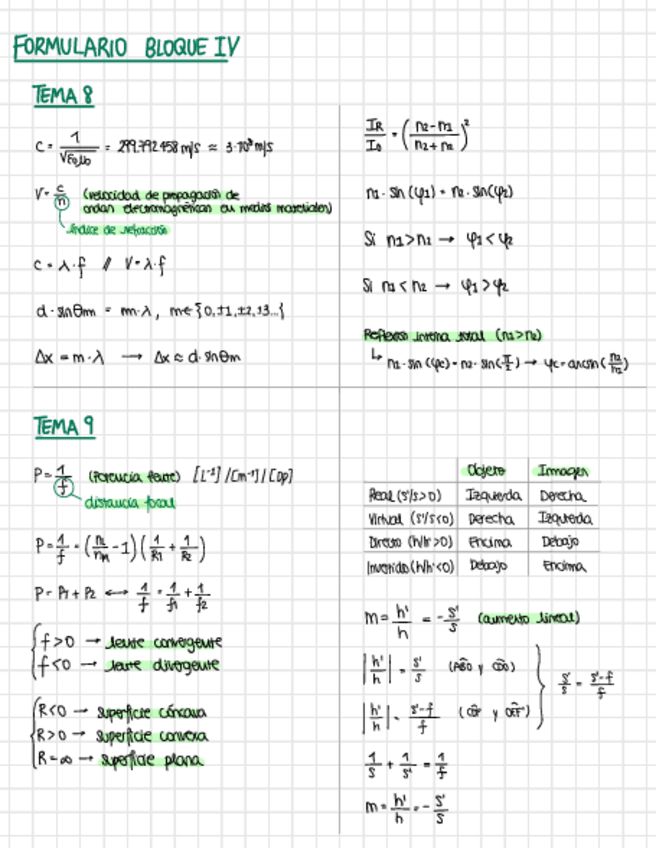 FORMULARIO BLOQUE IV
TEMA 8
c = 1/√ε₀μ₀ = 299.792.458 m/s ≈ 3·10⁸ m/s
V = c/n (velocidad de propagación de
ondas electromagnéticas en medios materiales)
índice de refracción
c = λ·f // V = λ·f
d·sinθm = m·λ, m∈{0,±1,±2,±3...}
Δx = m·λ → Δx ≈ d·sinθm
IR/I0 = (n2-n1/n2+n1)²
n1·sin(φ1) = n2·sin(φ2)
Si n1>n2 → φ1<φ2
Si n1<n2 → φ1>φ2
Reflexión interna total (n1>n2)
↳ n1·sin(φc) = n2·sin(π/2) → φc = arcsin(n2/n1)
TEMA 9
P = 1/f (Potencia lente) [L⁻¹]/[m⁻¹]/[Dp]
distancia focal
P = 1/f = (nL/nm - 1)(1/R1 + 1/R2)
P = P1 + P2 ↔ 1/f = 1/f1 + 1/f2
f>0 → lente convergente
f<0 → lente divergente
R<0 → superficie cóncava
R>0 → superficie convexa
R=∞ → superficie plana
Objeto Imagen
Real (s'/s>0) Izquierda Derecha
Virtual (s'/s<0) Derecha Izquierda
Directo (h/h'>0) Encima Debajo
Invertido (h/h'<0) Debajo Encima
m = h'/h = -s'/s (aumento lineal)
|h'/h| = s'/s (y)
|h'/h| = s'-f/f (y)
s'/s = s'-f/f
1/s + 1/s' = 1/f
m = h'/h = -s'/s